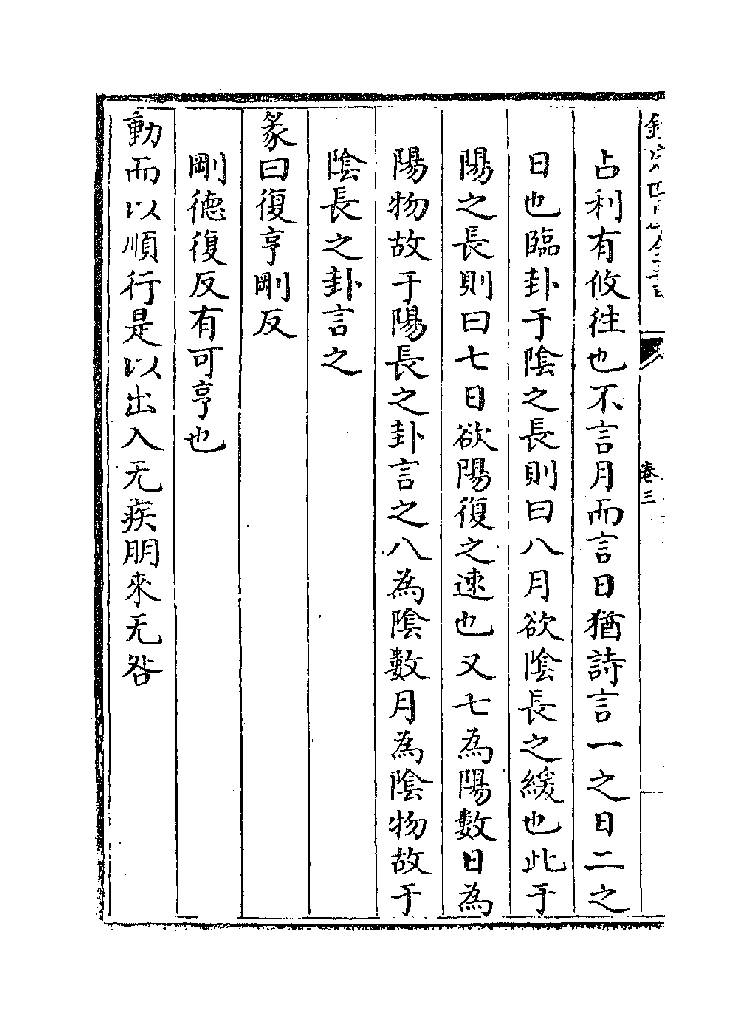 占利有攸往也不言月而言日猶詩言一之日二之
日也臨卦于陰之長則曰八月欲陰長之緩也此于
陽之長則曰七日欲陽復之速也又七為陽數日為
陽物故于陽長之卦言之八為陰數月為陰物故于
陰長之卦言之
彖曰復亨剛反
剛德復反有可亨也
動而以順行是以出入无疾朋來无咎
卷三